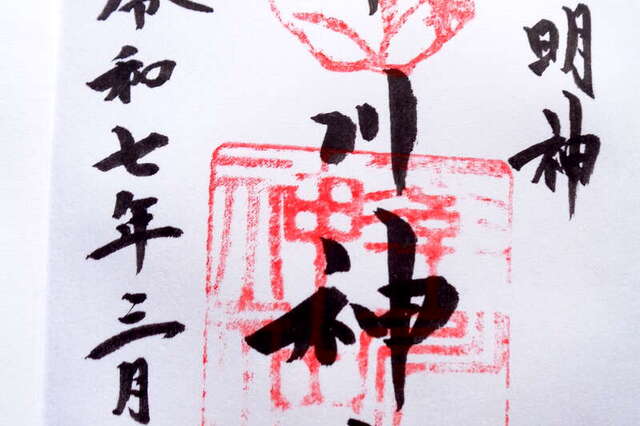 明神
川神
令和七年三月